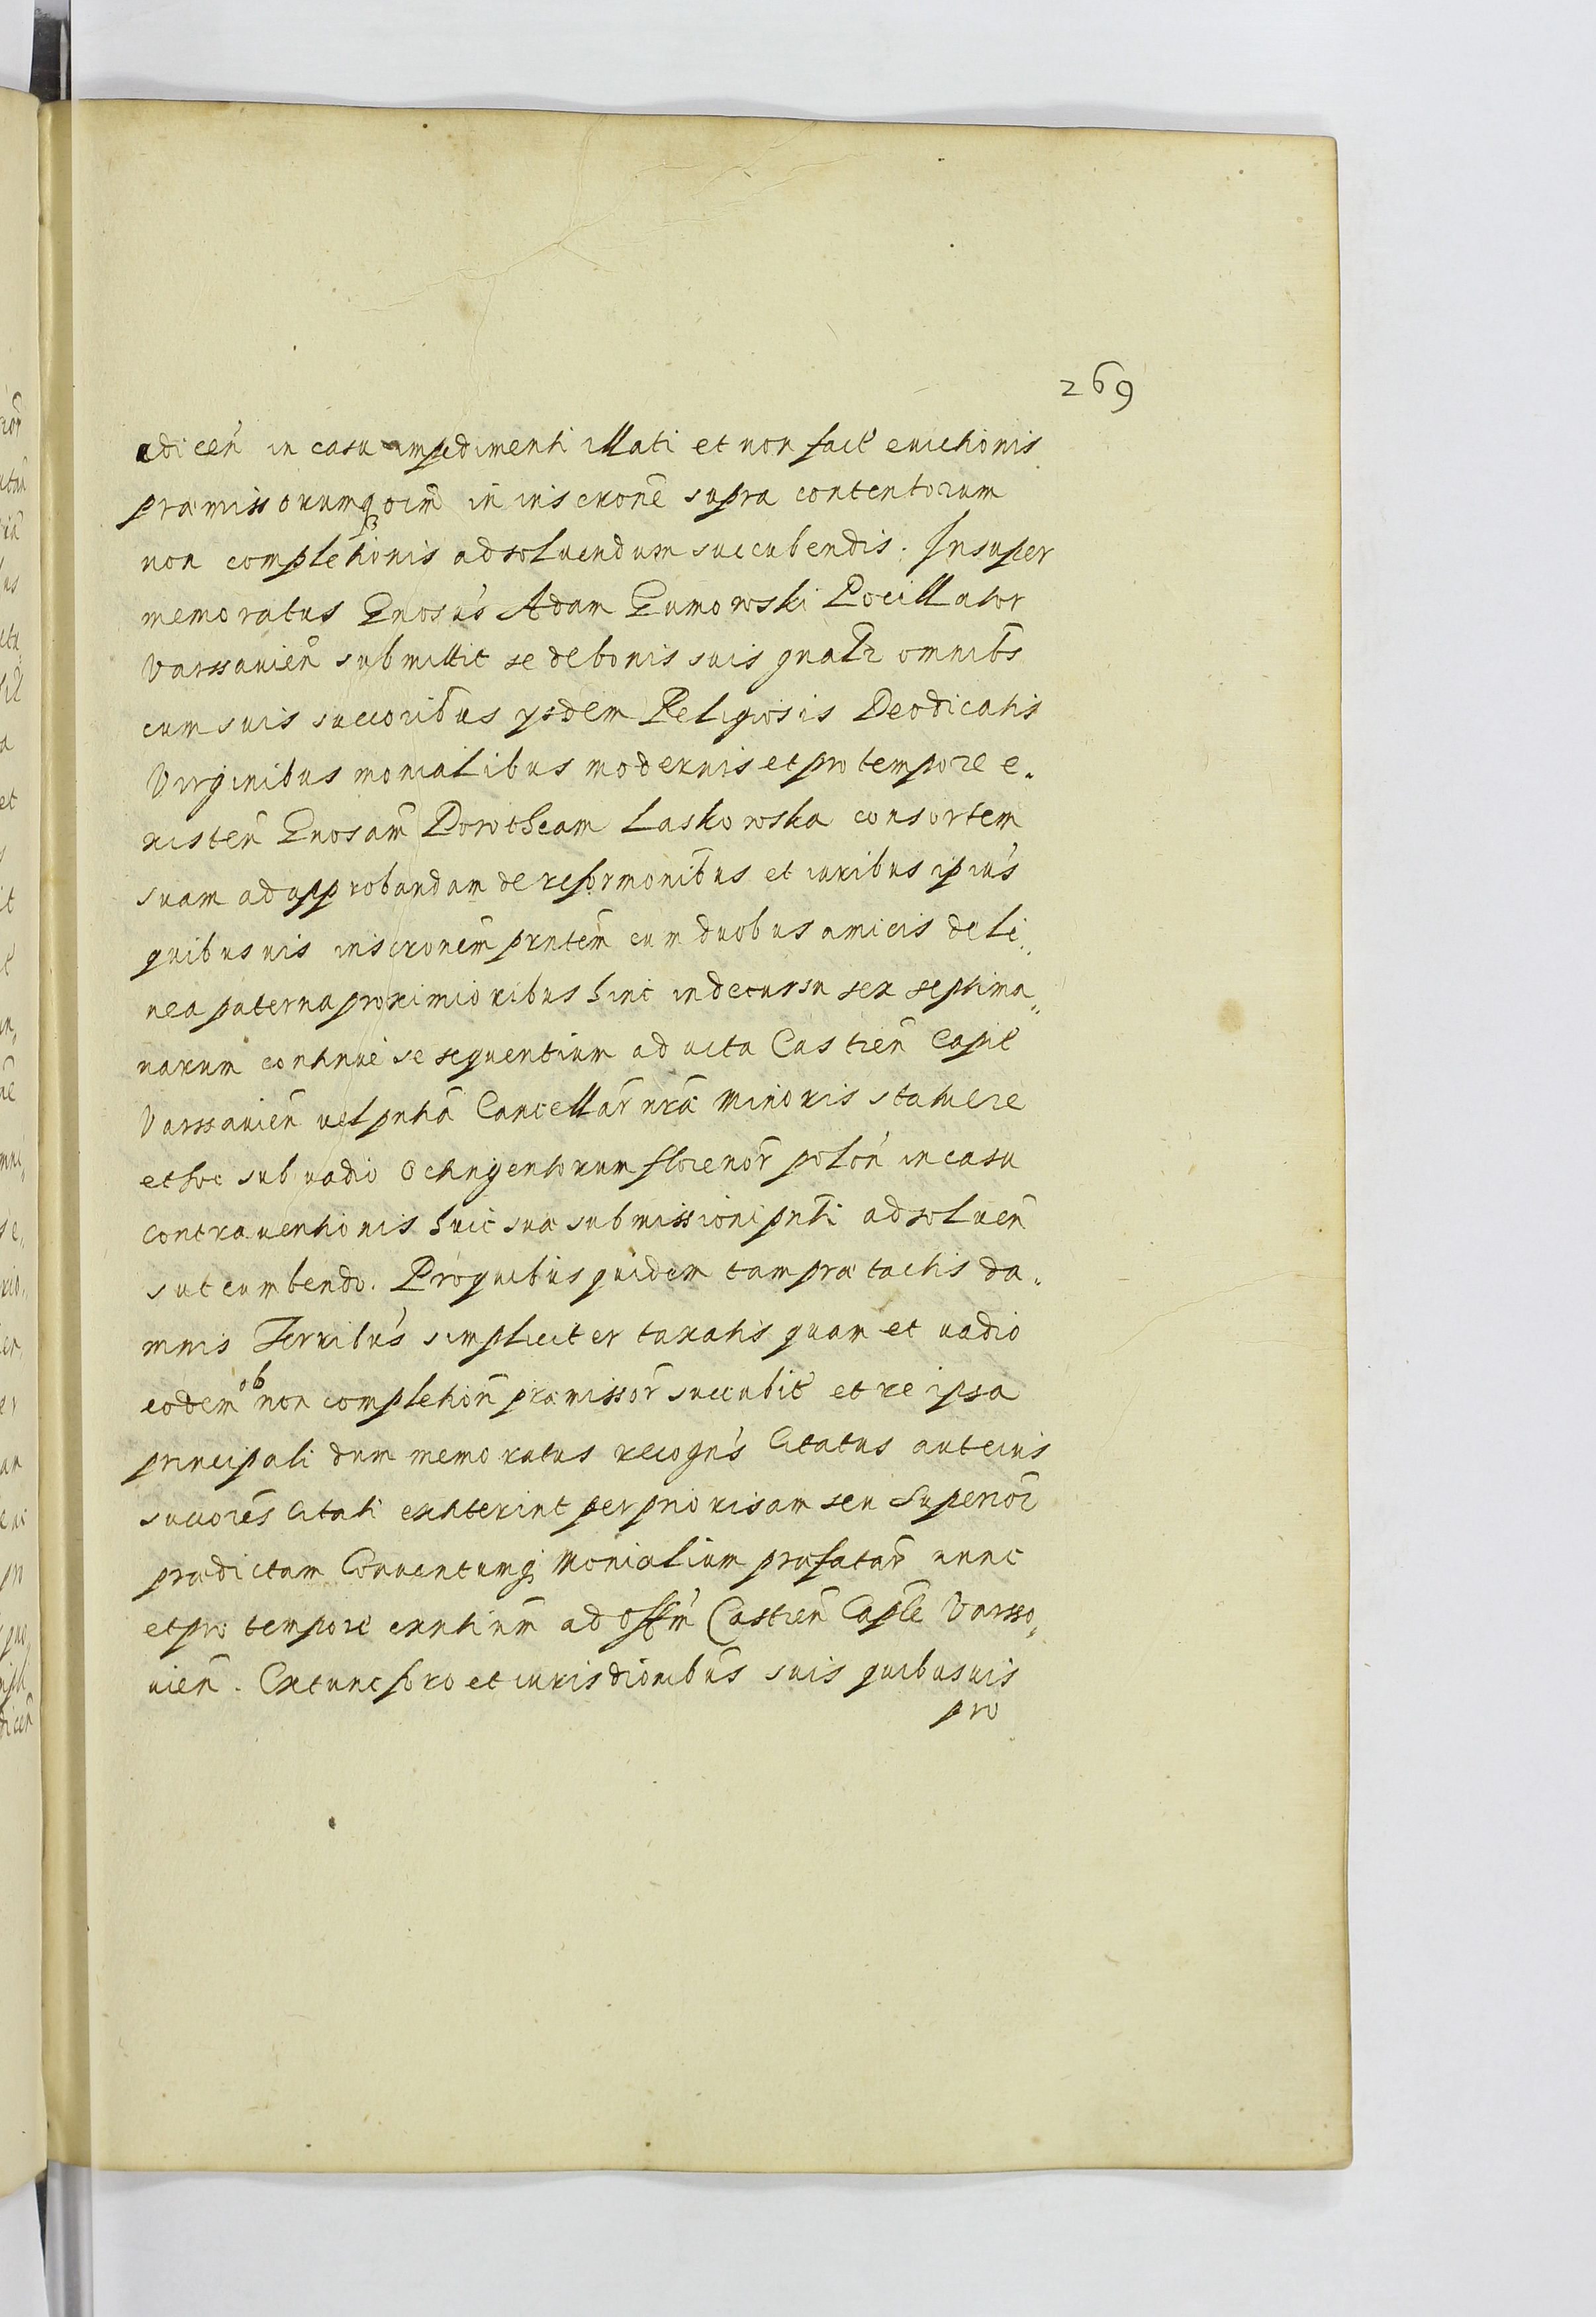 269
dicen̄ in casu impedimenti illati et non fact̄ euictionis
præmissorumq̨ oīm in inscr̄one supra contentorum
non completionis ad soluendum succubendis. Insuper
memoratus Gnosūs Adam Gumowski Pocillator
Varssauien̄ submittit se de bonis suis gnalr̄ omnibs̄
cum suis succorib̄us ysdem Religiosis Deo dicatis
Virginibus monialibus modernis et pro tempore e„
xisten̄ Gnosam̄ Dorotheam Laskowska consortem
suam ad approbandam de reformonib̄us et iuribus ipiūs
quibusuis inscr̄onem prn̄tem cum duobus amicis de li„
nea paterna proximioribus hinc in decursu sex septima„
narum continue se sequentium ad acta Castren̄ Capit̄
Varssauien̄ vel pn̄tia Cancellar̄ nrā Minoris statuere
et hoc sub vadio octingentorum florenor̄ polon̄ in casu
contrauentionis huic suæ submissioni pn̄ti ad soluen̄
succumbendo. Pro quibus quidem tam prætactis da„
mnis Terribūs simpliciter taxatis quam et vadio
eodem ob non completion̄ præmissor̄ succubit̄ et re ipsa
principali dum memoratus recogn̄s Citatus aut eius
succorēs Citati extiterint per priorisam seu Superior̄
prædictam Conuentumq̨ Monialium præfatar̄ nunc
et pro tempore exn̄tium ad Offm̄ Castren̄ Caplē Varsso„
uien̄. Extunc foro et iurisdionibūs suis quibusuis
pro